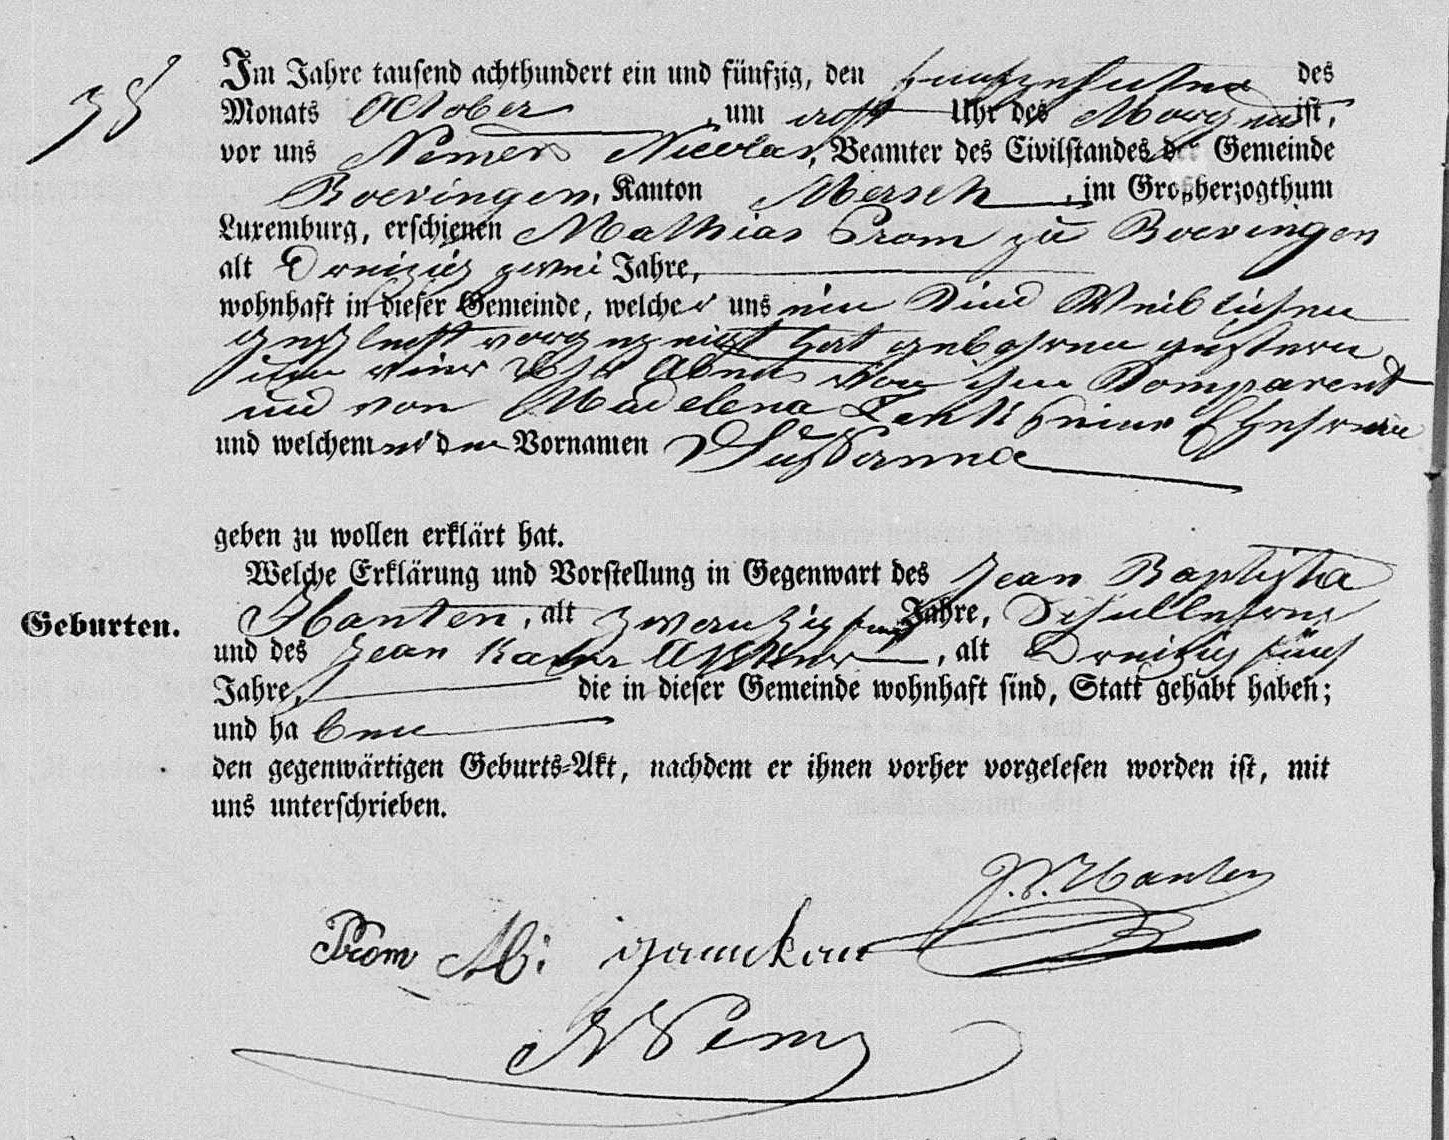 38
Im Jahre tausend achthundert ein und fünfzig, den fünfzehnten des
Monats October, um acht Uhr des Morgens ist,
vor uns Nemers Nicolas, Beamter des Civilstandes der Gemeinde
Boevingen, Kanton Mersch, im Großherzogthum
Luxemburg, erschienen Mathias Prom zu Boevingen
alt Dreizig zwei Jahre,
wohnhaft in dieser Gemeinde, welcher uns ein Kind Weiblichen
geschlecht vorgezeigt hat gebohren gestern
um vier Uhr Abens von ihm Komparent
und von Madelena seiner Ehefrau
und welchem er den Vornamen Sussanna
geben zu wollen erklärt hat.
Welche Erklärung und Vorstellung in Gegenwart des Jean Baptista
Geburten.
Hanten, alt zwanzig Jahre, Schullehrer
und des Jean, alt Dreizig fünf
Jahre, die in dieser Gemeinde wohnhaft sind, Statt gehabt haben;
und haben
den gegenwärtigen Geburts-Akt, nachdem er ihnen vorher vorgelesen worden ist, mit
uns unterschrieben.
Hanten
Prom